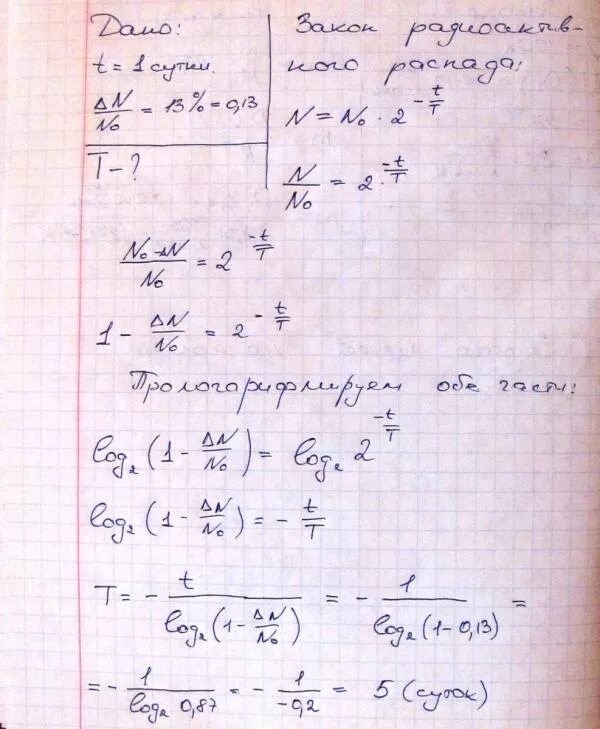 Дано:
t = 1 сутки.
ΔN/N₀ = 13% = 0,13
T - ?
Закон радиоактив-
ного распада:
N = N₀ · 2^(-t/T)
N/N₀ = 2^(-t/T)
(N₀ - ΔN)/N₀ = 2^(-t/T)
1 - ΔN/N₀ = 2^(-t/T)
Прологарифмируем обе части:
log₂(1 - ΔN/N₀) = log₂ 2^(-t/T)
log₂(1 - ΔN/N₀) = - t/T
T = - t/(log₂(1 - ΔN/N₀)) = - 1/(log₂(1 - 0,13)) =
= - 1/(log₂ 0,87) = - 1/(-0,2) = 5 (суток)